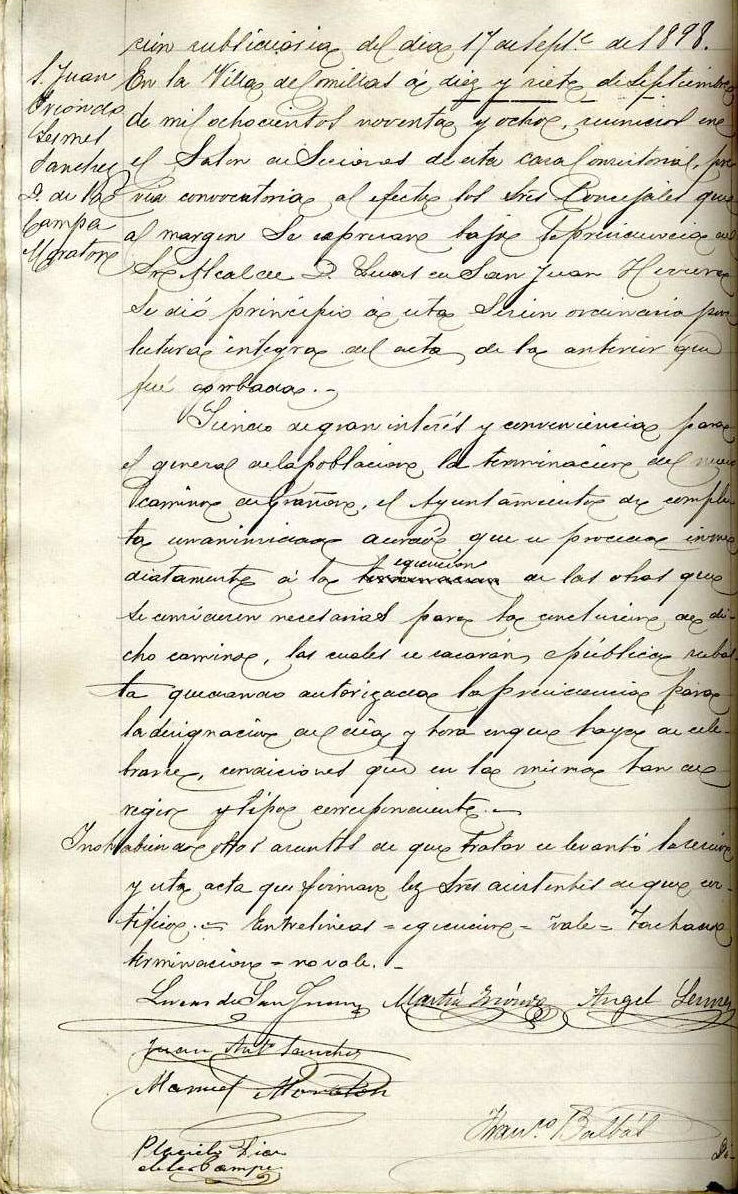 cion subsidiaria del dia 17 de Septe. de 1898.
S. Juan
Erionda
Lesmes
Sanchez
D. de la
Campa
Moraton
En la Villa de Comillas á diez y siete de Septiembre
de mil ochocientos noventa y ocho, reunidos en
el Salon de Sesiones de esta casa Consistorial, pre
via convocatoria al efecto los Sres Concejales que
al margen se expresan bajo la presidencia del
Sr. Alcalde D. Lucas de San Juan Herrera
se dió principio á esta Sesion ordinaria por
lectura integra del acta de la anterior que
fué aprobada.-
Siendo de gran interés y conveniencia para
el general de la poblacion la terminacion del nuevo
camino de, el Ayuntamiento de comple
ta unanimidad acordó que se proceda inme
diatamente á la terminacion egecucion de las obras que
se consideren necesarias para la conclusion de di-
cho camino, las cuales se sacarán á pública subas-
ta quedando autorizada la presidencia para
la designacion del dia y hora en que haya de cele-
brarse, condiciones que en la misma han de
regir y tipo correspondiente.-
I no habiendo otros asuntos de que tratar se levantó la sesion
y esta acta que firman los Sres asistentes de que cer-
tifico.= Entrelineas = egecucion = vale = Tachado
terminacion = no vale.-
Lucas de San Juan Martin Erionda Angel Lesmes
Juan Anto. Sanchez
Manuel Moraton
Franco. Balbás
Placido Diaz
de la Campa